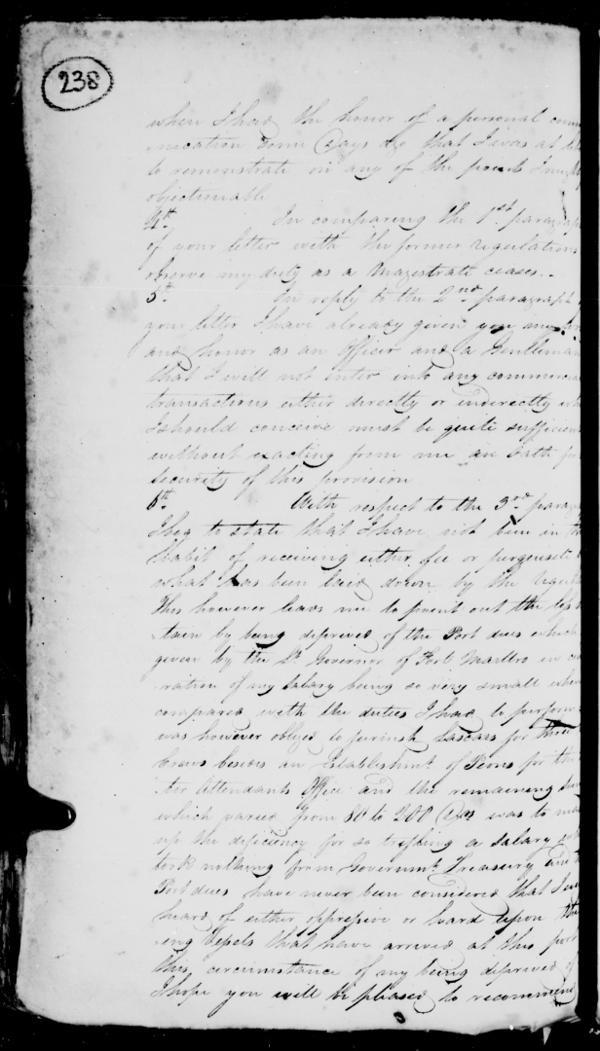 238
when I had the honor of a personal comm
nication some days ago that I was at lib
to remonstrate on any of the points I
objectionable
4th. In comparing the 1st paragra
of your letter with the former regulations
observe my duty as a Magistrate ceases..
5th. In reply to the 2nd paragraph
your letter I have already given you my
and honor as an Officer and a Gentleman
that I will not enter into any commercia
transactions either directly or inderectly
I should conceive must be quite sufficien
without exacting from me an oath for
security of this provision
6th. With respect to the 3rd parag
I beg to state that I have not been in th
habit of receiving either fee or perquisite
what has been laid down by the
This however leads me to point out the loss
tain by being deprived of the Port dues which
given by the Lt. Governor of Fort Marlbro in
ration of my salary being so very small when
compared with the duties I had to perform
was however obliged to furnish Lascars for three
brows besides an Establishment of Peons for the
ter Attendants Office and the remaining
which varied from 80 to 200 was to ma
up the deficiency for so trifling a salary
took nothing from Governmt. Treasury and
Port dues have never been considered that I ever
heard of either oppressive or hard upon the
ing Vessels that have arrived at this port
this circumstance of my being deprived of
I hope you will be pleased to recommend